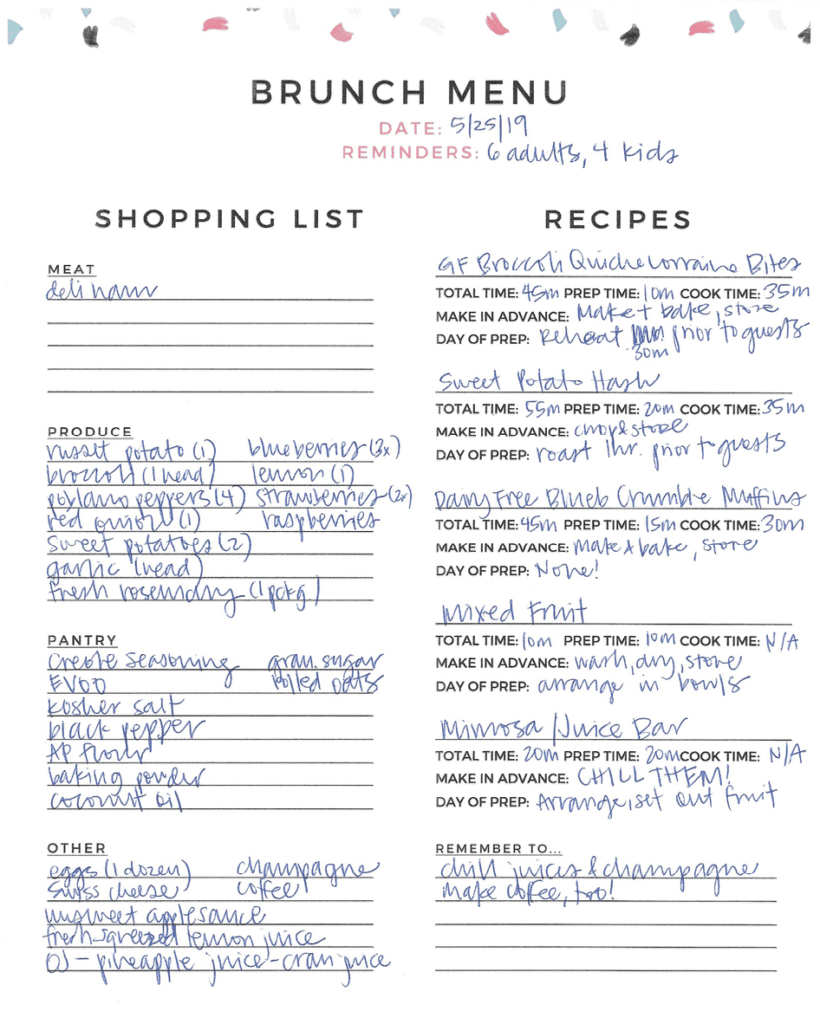 BRUNCH MENU
DATE: 5/25/19
REMINDERS: 6 adults, 4 kids
SHOPPING LIST
MEAT
deli ham
PRODUCE
russet potato (1) blueberries (3x)
broccoli (1 head) lemon (1)
poblano peppers (4) strawberries (2x)
red onion (1) raspberries
sweet potatoes (2)
garlic (head)
fresh rosemary (1 pckg)
PANTRY
creole seasoning gran. sugar
EVOO rolled oats
kosher salt
black pepper
AP flour
baking powder
coconut oil
OTHER
eggs (1 dozen) champagne
swiss cheese coffee
unsweet applesauce
fresh-squeezed lemon juice
OJ - pineapple juice - cran juice
RECIPES
GF Broccoli Quiche Lorraine Bites
TOTAL TIME: 45m PREP TIME: 10m COOK TIME: 35m
MAKE IN ADVANCE: Make + bake, store
DAY OF PREP: Reheat prior to guests
30m
Sweet Potato Hash
TOTAL TIME: 55m PREP TIME: 20m COOK TIME: 35m
MAKE IN ADVANCE: chop & store
DAY OF PREP: roast 1hr. prior to guests
Dairy Free Blueb Crumble Muffins
TOTAL TIME: 45m PREP TIME: 15m COOK TIME: 30m
MAKE IN ADVANCE: Make & bake, store
DAY OF PREP: None!
Mixed Fruit
TOTAL TIME: 10m PREP TIME: 10m COOK TIME: N/A
MAKE IN ADVANCE: wash, dry, store
DAY OF PREP: arrange in bowls
Mimosa/Juice Bar
TOTAL TIME: 20m PREP TIME: 20m COOK TIME: N/A
MAKE IN ADVANCE: CHILL THEM!
DAY OF PREP: Arrange, set out fruit
REMEMBER TO...
chill juices & champagne
make coffee, too!